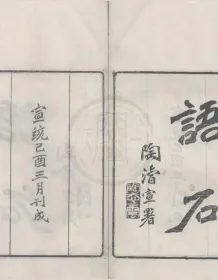 語石
陶濬宣署
宣統己酉三月刊成